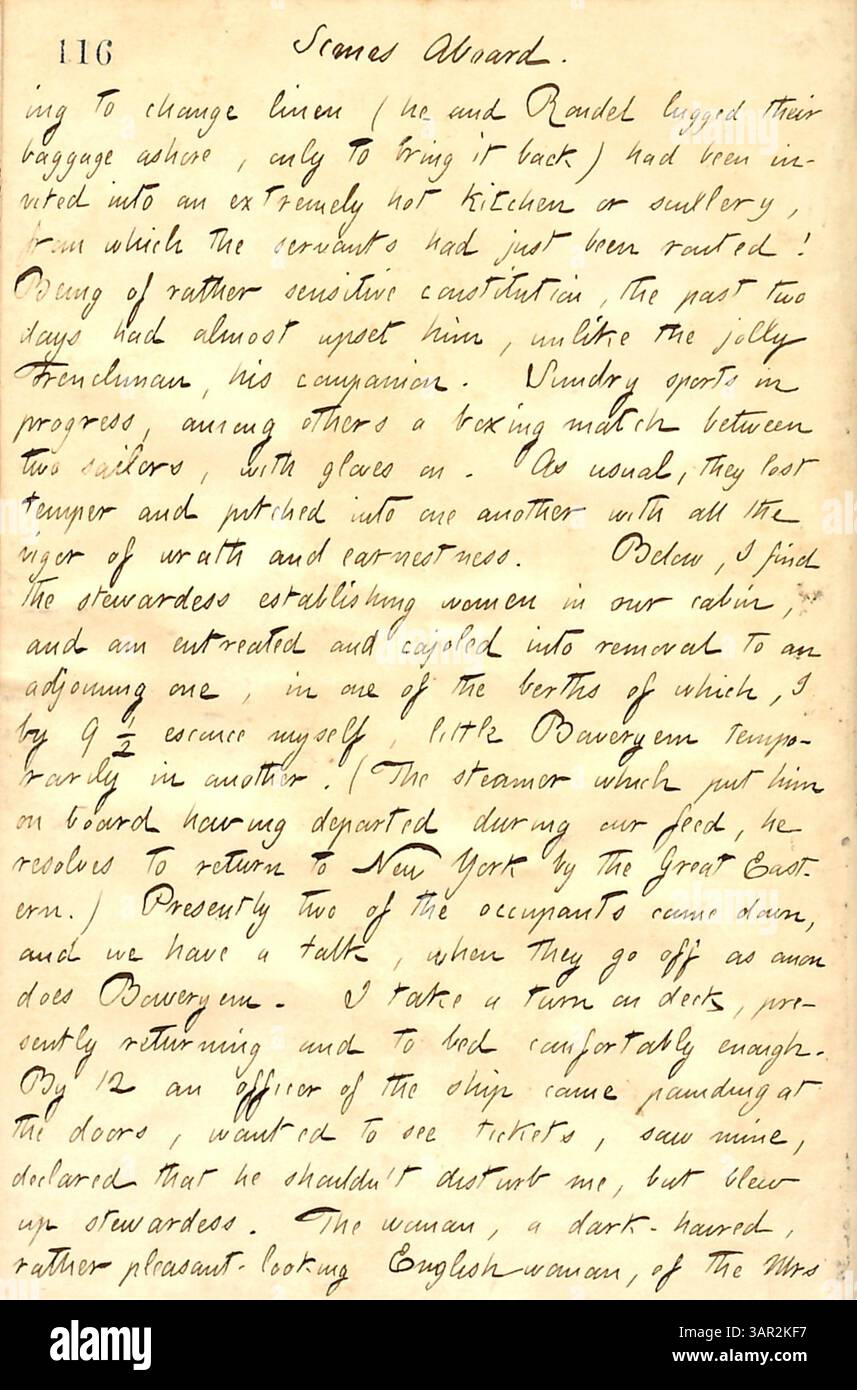 116 Scenes Aboard.
ing to change linen (he and Rondel lugged their
baggage ashore, only to bring it back) had been in-
vited into an extremely hot kitchen or scullery,
from which the servants had just been routed!
Being of rather sensitive constitution, the past two
days had almost upset him, unlike the jolly
Frenchman, his companion. Sundry sports in
progress, among others a boxing match between
two sailors, with gloves on. As usual, they lost
temper and pitched into one another with all the
vigor of wrath and earnestness. Below, I find
the stewardess establishing women in our cabin,
and am entreated and cajoled into removal to an
adjoining one, in one of the berths of which, I
by 9 1/2 esconce myself, little Boweryem tempo-
rarily in another. (The steamer which put him
on board having departed during our feed, he
resolves to return to New York by the Great East-
ern.) Presently two of the occupants came down,
and we have a talk, when they go off as anon
does Boweryem. I take a turn on deck, pre-
sently returning and to bed comfortably enough.
By 12 an officer of the ship came pounding at
the doors, wanted to see tickets, saw mine,
declared that he shouldn't disturb me, but blew
up stewardess. The woman, a dark-haired,
rather pleasant-looking Englishwoman, of the Mrs
alamy
Image ID: 3AR2KF7
www.alamy.com